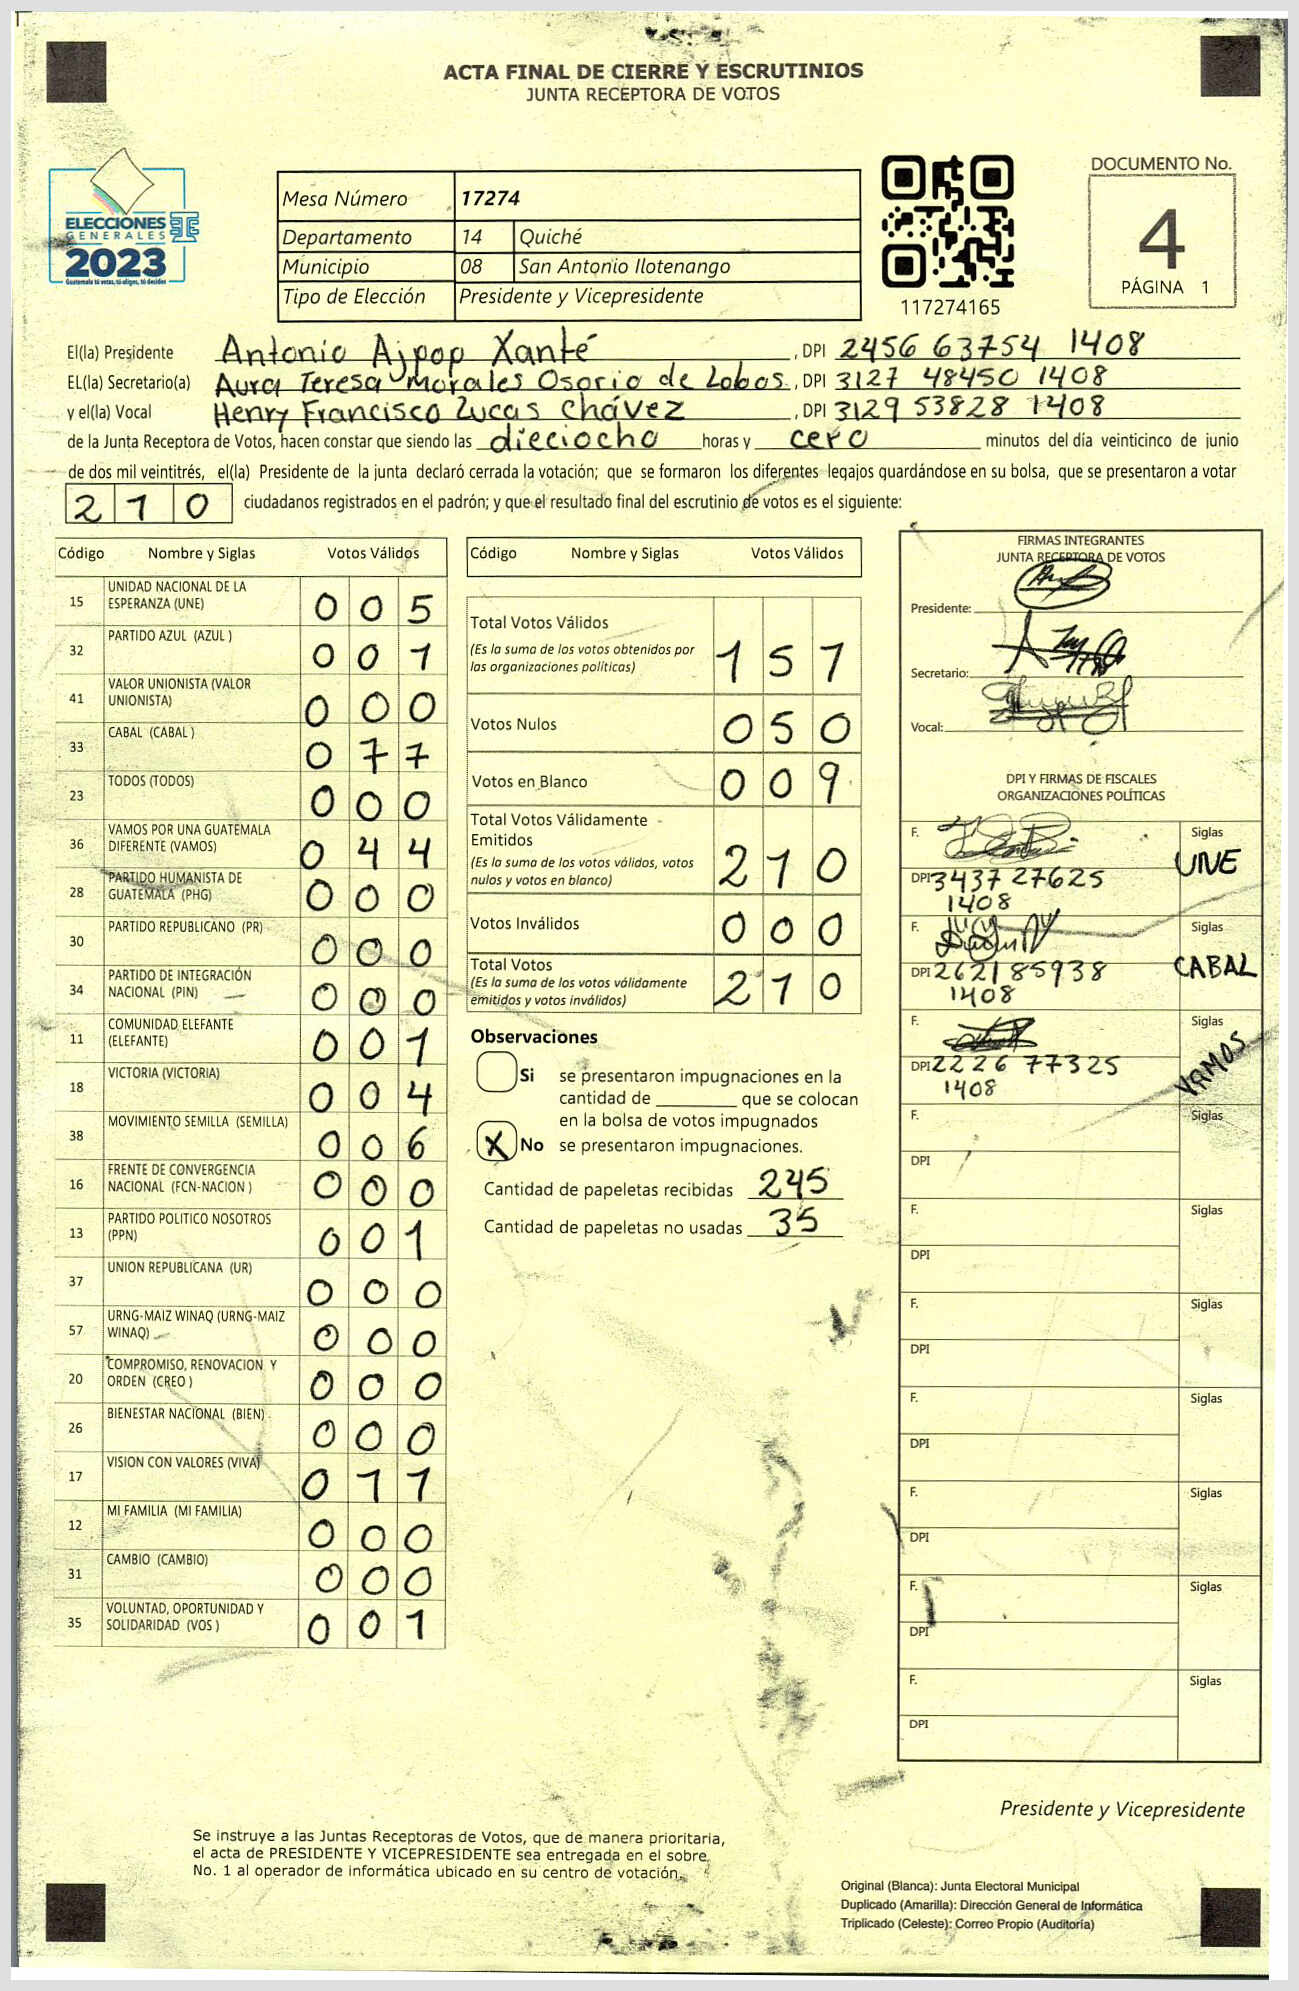 ACTA FINAL DE CIERRE Y ESCRUTINIOS
JUNTA RECEPTORA DE VOTOS
ELECCIONES
GENERALES
2023
Guatemala tú votas, tú eliges, tú decides
Mesa Número 17274
Departamento 14 Quiché
Municipio 08 San Antonio Ilotenango
Tipo de Elección Presidente y Vicepresidente
117274165
DOCUMENTO No.
4
PÁGINA 1
El(la) Presidente Antonio Ajpop Xanté, DPI 2456 63754 1408
EL(la) Secretario(a) Aura Teresa Morales Osorio de Lobos, DPI 3127 48450 1408
y el(la) Vocal Henry Francisco Lucas Chávez, DPI 3129 53828 1408
de la Junta Receptora de Votos, hacen constar que siendo las dieciocho horas y cero minutos del día veinticinco de junio
de dos mil veintitrés, el(la) Presidente de la junta declaró cerrada la votación; que se formaron los diferentes legajos guardándose en su bolsa, que se presentaron a votar
210 ciudadanos registrados en el padrón; y que el resultado final del escrutinio de votos es el siguiente:
Código Nombre y Siglas Votos Válidos
15 UNIDAD NACIONAL DE LA ESPERANZA (UNE) 005
32 PARTIDO AZUL (AZUL ) 001
41 VALOR UNIONISTA (VALOR UNIONISTA) 000
33 CABAL (CABAL ) 077
23 TODOS (TODOS) 000
36 VAMOS POR UNA GUATEMALA DIFERENTE (VAMOS) 044
28 PARTIDO HUMANISTA DE GUATEMALA (PHG) 000
30 PARTIDO REPUBLICANO (PR) 000
34 PARTIDO DE INTEGRACIÓN NACIONAL (PIN) 000
11 COMUNIDAD ELEFANTE (ELEFANTE) 001
18 VICTORIA (VICTORIA) 004
38 MOVIMIENTO SEMILLA (SEMILLA) 006
16 FRENTE DE CONVERGENCIA NACIONAL (FCN-NACION ) 000
13 PARTIDO POLITICO NOSOTROS (PPN) 001
37 UNION REPUBLICANA (UR) 000
57 URNG-MAIZ WINAQ (URNG-MAIZ WINAQ) 000
20 COMPROMISO, RENOVACION Y ORDEN (CREO ) 000
26 BIENESTAR NACIONAL (BIEN) 000
17 VISION CON VALORES (VIVA) 011
12 MI FAMILIA (MI FAMILIA) 000
31 CAMBIO (CAMBIO) 000
35 VOLUNTAD, OPORTUNIDAD Y SOLIDARIDAD (VOS ) 001
Código Nombre y Siglas Votos Válidos
Total Votos Válidos 151
(Es la suma de los votos obtenidos por
las organizaciones políticas)
Votos Nulos 050
Votos en Blanco 009
Total Votos Válidamente
Emitidos 210
(Es la suma de los votos válidos, votos
nulos y votos en blanco)
Votos Inválidos 000
Total Votos 210
(Es la suma de los votos válidamente
emitidos y votos inválidos)
Observaciones
Si se presentaron impugnaciones en la
cantidad de ________ que se colocan
en la bolsa de votos impugnados
X No se presentaron impugnaciones.
Cantidad de papeletas recibidas 245
Cantidad de papeletas no usadas 35
FIRMAS INTEGRANTES
JUNTA RECEPTORA DE VOTOS
Presidente:
Secretario:
Vocal:
DPI Y FIRMAS DE FISCALES
ORGANIZACIONES POLÍTICAS
F. Siglas UNE
DPI 3437 27625
1408
F. Siglas CABAL
DPI 2621 85938
1408
F. Siglas VAMOS
DPI 2226 77325
1408
F. Siglas
DPI
F. Siglas
DPI
F. Siglas
DPI
F. Siglas
DPI
F. Siglas
DPI
F. Siglas
DPI
F. Siglas
DPI
Presidente y Vicepresidente
Se instruye a las Juntas Receptoras de Votos, que de manera prioritaria,
el acta de PRESIDENTE Y VICEPRESIDENTE sea entregada en el sobre
No. 1 al operador de informática ubicado en su centro de votación.
Original (Blanca): Junta Electoral Municipal
Duplicado (Amarilla): Dirección General de Informática
Triplicado (Celeste): Correo Propio (Auditoría)